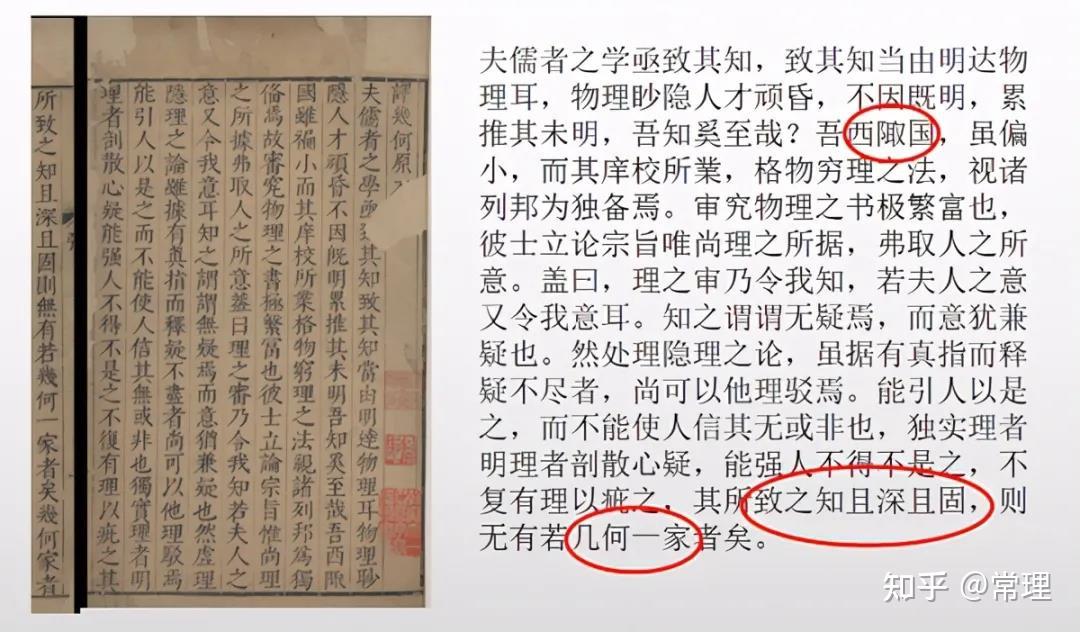 譯幾何原
夫儒者之學亟致其知致其知當由明達物理耳物理眇
隱人才頑昏不因既明累推其未明吾知奚至哉吾西陬
國雖褊小而其庠校所業格物窮理之法視諸列邦為獨
俻焉故審究物理之書極繁富也彼士立論宗旨惟尚理
之所據弗取人之所意葢曰理之審乃令我知若夫人之
意又令我意耳知之謂謂無疑焉而意猶兼疑也然虛理
隱理之論雖據有真指而釋疑不盡者尚可以他理駁焉
能引人以是之而不能使人信其無或非也獨實理者明
理者剖散心疑能強人不得不是之不復有理以疵之其
所致之知且深且固則無有若幾何一家者矣幾何家者
夫儒者之学亟致其知，致其知当由明达物
理耳，物理眇隐人才顽昏，不因既明，累
推其未明，吾知奚至哉？吾西陬国，虽偏
小，而其庠校所業，格物穷理之法，视诸
列邦为独备焉。审究物理之书极繁富也，
彼士立论宗旨唯尚理之所据，弗取人之所
意。盖曰，理之审乃令我知，若夫人之意
又令我意耳。知之谓谓无疑焉，而意犹兼
疑也。然处理隐理之论，虽据有真指而释
疑不尽者，尚可以他理驳焉。能引人以是
之，而不能使人信其无或非也，独实理者
明理者剖散心疑，能强人不得不是之，不
复有理以疵之，其所致之知且深且固，则
无有若几何一家者矣。
知乎 @常理